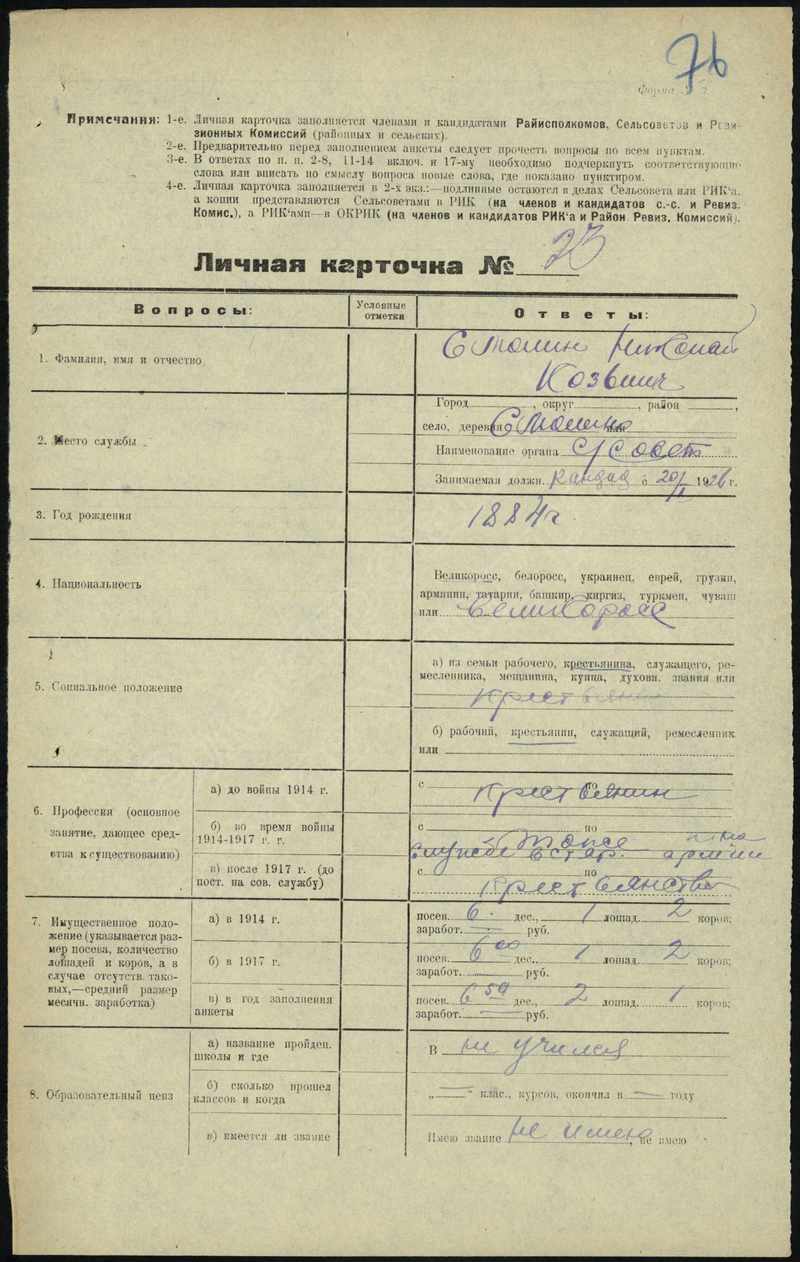 76
Форма
Примечания: 1-е. Личная карточка заполняется членами и кандидатами Райисполкомов, Сельсоветов и Реви-
зионных Комиссий (районных и сельских).
2-е. Предварительно перед заполнением анкеты следует прочесть вопросы по всем пунктам.
3-е. В ответах по п. п. 2-8, 11-14 включ. и 17-му необходимо подчеркнуть соответствующие
слова или вписать по смыслу вопроса новые слова, где показано пунктиром.
4-е. Личная карточка заполняется в 2-х экз.:—подлинные остаются в делах Сельсовета или РИК'а,
а копии представляются Сельсоветами в РИК (на членов и кандидатов с.-с. и Ревиз.
Комис.), а РИК'ами—в ОКРИК (на членов и кандидатов РИК'а и Район. Ревиз. Комиссий).
Личная карточка № 23
Вопросы:
Условные
отметки
Ответы:
1. Фамилия, имя и отчество
Николай
2. Место службы
Город , округ , район ,
село, деревня
Наименование органа с/совет
Занимаемая должн. Кандид с 20/I 1926 г.
3. Год рождения
1884 г
4. Национальность
Великоросс, белоросс, украинец, еврей, грузин,
армянин, татарин, башкир, киргиз, туркмен, чуваш
или Великоросс
5. Социальное положение
а) из семьи рабочего, крестьянина, служащего, ре-
месленника, мещанина, купца, духовн. звания или
Крестьянин
б) рабочий, крестьянин, служащий, ремесленник
или
6. Профессия (основное
занятие, дающее сред-
ства к существованию)
а) до войны 1914 г.
с Крестьянин
б) во время войны
1914-1917 г. г.
с по
службе в стар. армии
в) после 1917 г. (до
пост. на сов. службу)
с по
Крестьянство
7. Имущественное поло-
жение (указывается раз-
мер посева, количество
лошадей и коров, а в
случае отсутств. тако-
вых,—средний размер
месячн. заработка)
а) в 1914 г.
посев. 6 дес., 1 лошад. 2 коров;
заработ. — руб.
б) в 1917 г.
посев. 6 00 дес. 1 лошад. 2 коров;
заработ. — руб.
в) в год заполнения
анкеты
посев. 6 50 дес., 2 лошад. 1 коров;
заработ. — руб.
8. Образовательный ценз
а) название пройден.
школы и где
В не учился
б) сколько прошел
классов и когда
„—" клас., курсов, окончил в — году
в) имеется ли звание
Имею звание не имею, не имею